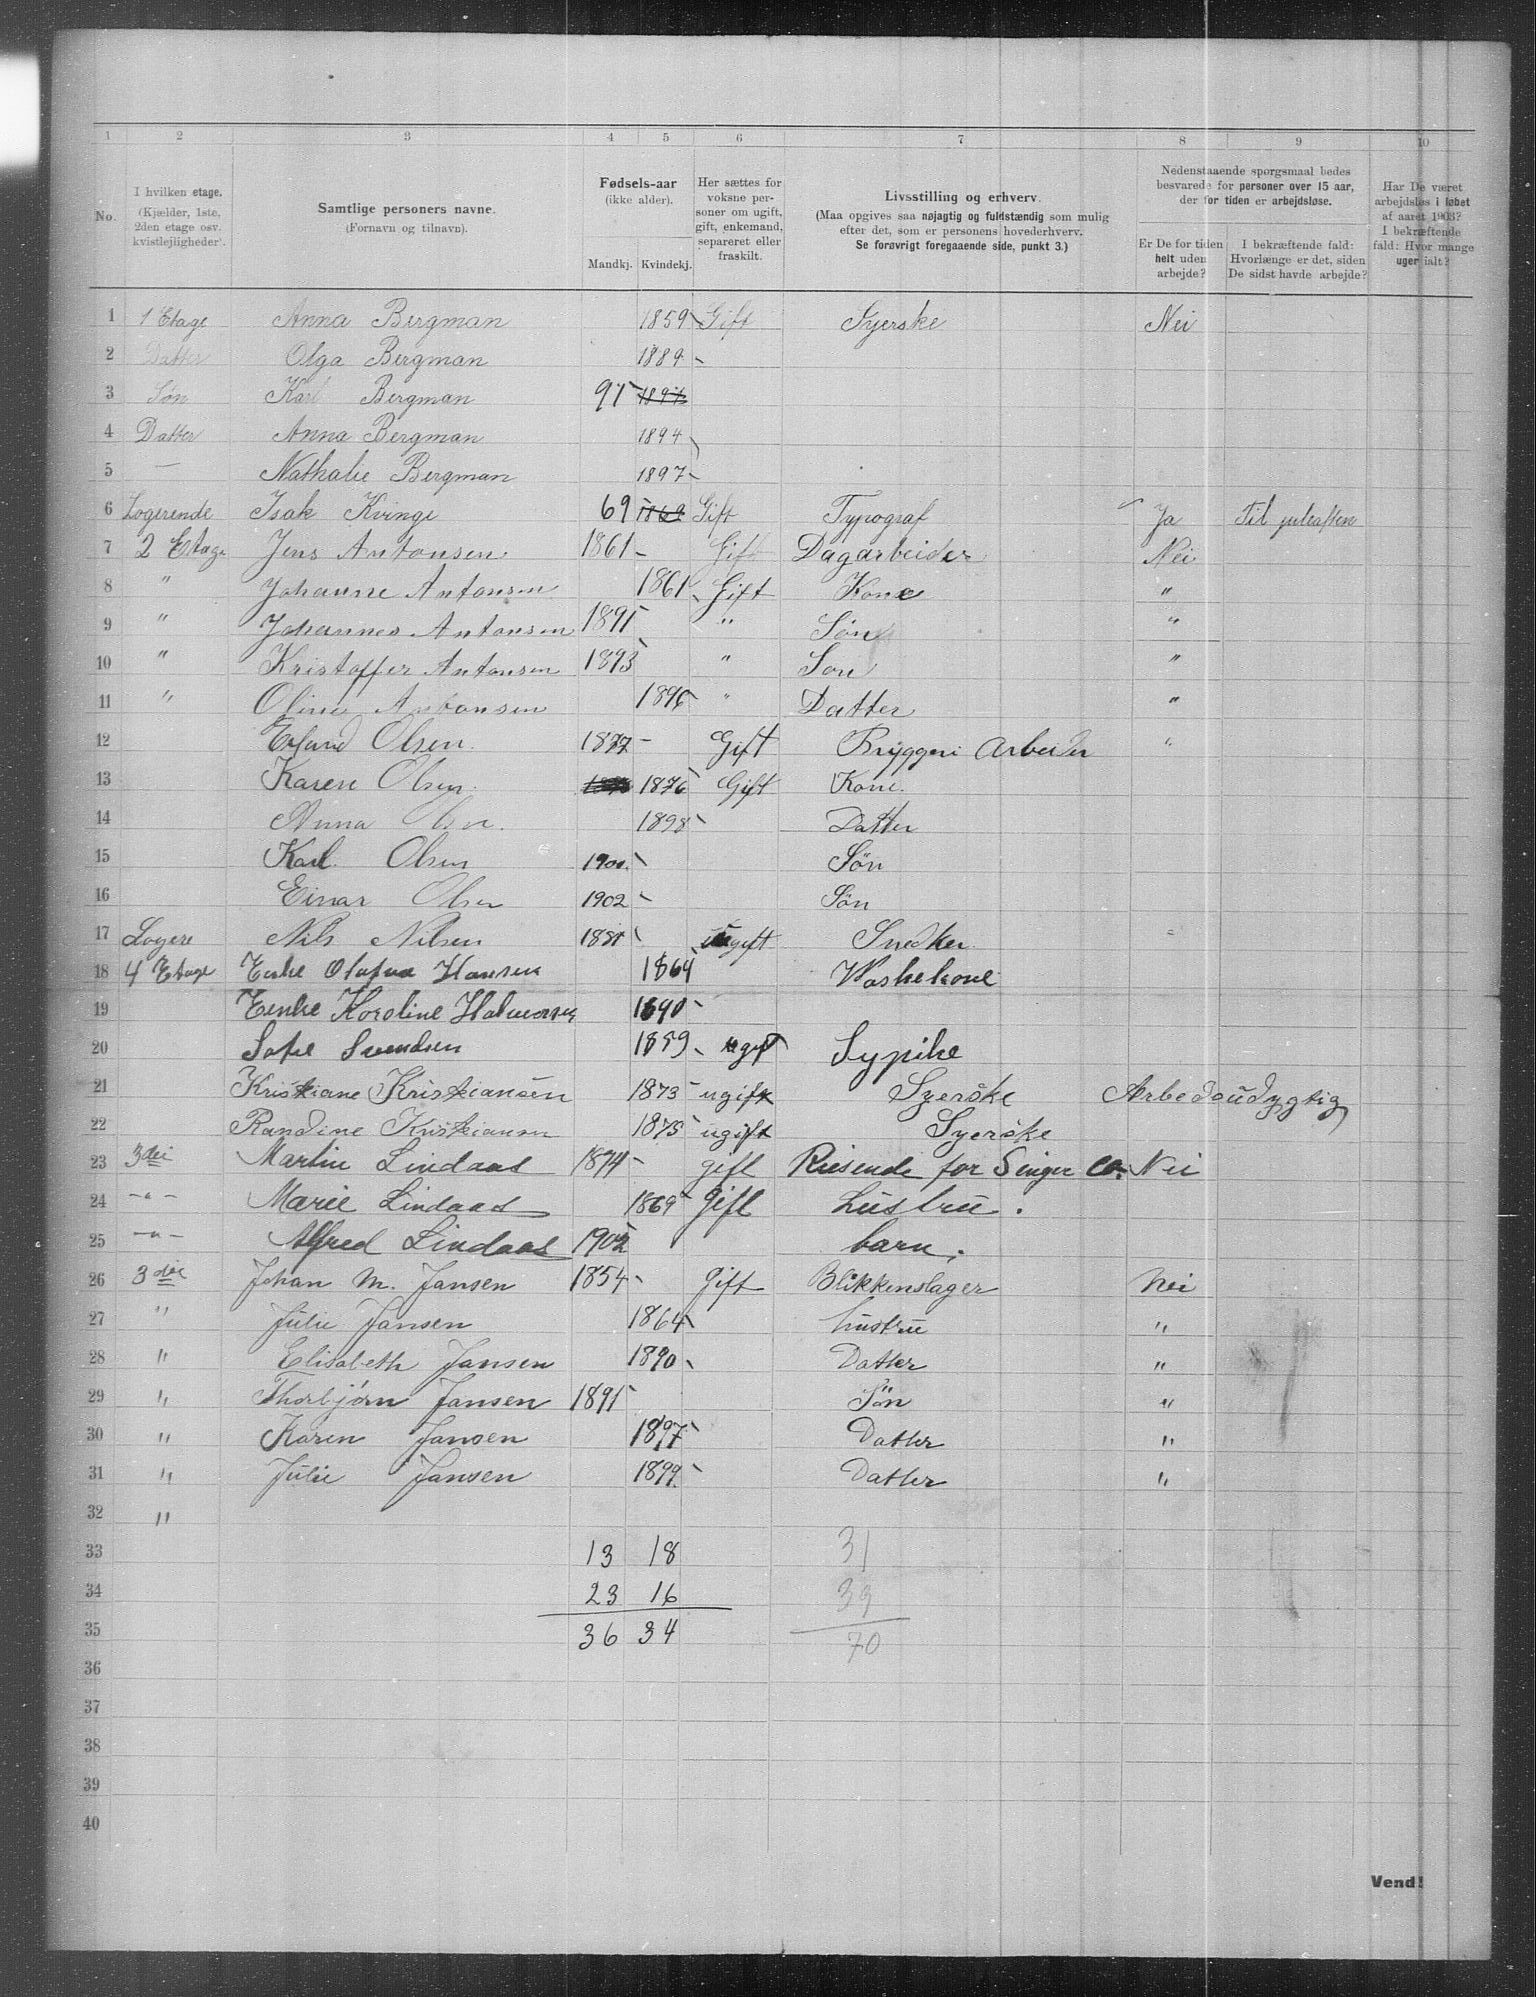 1 2 3 4 5 6 7 8 9 10
No. I hvilken etage. (Kjælder, 1ste, 2den etage osv. kvistlejligheder). Samtlige personers navne. (Fornavn og tilnavn). Fødsels-aar (ikke alder). Mandkj. Kvindekj. Her sættes for voksne personer om ugift, gift, enkemand, separeret eller fraskilt. Livsstilling og erhverv. (Maa opgives saa nøjagtig og fuldstændig som mulig efter det, som er personens hovederhverv. Se forøvrigt foregaaende side, punkt 3.) Nedenstaaende spørgsmaal bedes besvarede for personer over 15 aar, der for tiden er arbejdsløse. Er De for tiden helt uden arbejde? I bekræftende fald: Hvorlænge er det, siden De sidst havde arbejde? Har De været arbejdsløs i løbet af aaret 1903? I bekræftende fald: Hvor mange uger ialt?
1 1 Etage Anna Bergman 1859 Gift Syerske Nei
2 Datter Olga Bergman 1889
3 Søn Karl Bergman 91
4 Datter Anna Bergman 1894
5 — Nathalie Bergman 1897
6 Logerende Isak Kvinge 69 1869 Gift Typograf Ja Til juleaften
7 2 Etage Jens Antonsen 1861 Gift Dagarbeider Nei
8 " Johanne Antonsen 1861 Gift Kone "
9 " Johannes Antonsen 1891 " Søn "
10 " Kristoffer Antonsen 1893 " Son "
11 " Oline Antonsen 1896 " Datter "
12 Erland Olsen 1877 Gift Bryggeri Arbeider "
13 Karen Olsen 1876 Gift Kone.
14 Anna Olsen. 1898 Datter
15 Karl Olsen 1900 Søn
16 Einar Olsen 1902 Søn
17 Logere Nils Nilsen 1881 ugift Snedker "
18 4 Etage Enke Olafva Hansen 1864 Waskekone
19 Enke Karoline Halvorsen 1890
20 Sofie Svendsen 1859 ugift Sypike
21 Kristiane Kristiansen 1873 ugift Syerske Arbedsudygtig
22 Randine Kristiansen 1875 ugift Syerske
23 3die Martin Lindaas 1874 gift Reisende for Singer Co. Nei
24 -"- Marie Lindaas 1869 Gift hustru.
25 -"- Alfred Lindaas 1902 barn.
26 3die Johan M. Jansen 1854 Gift Blikkenslager Nei
27 " Julie Jansen 1864 hustru "
28 " Elisabeth Jansen 1890 Datter "
29 " Thorbjørn Jansen 1891 Søn "
30 " Karen Jansen 1897 Datter "
31 " Julie Jansen 1899 Datter "
32 "
33 13 18 31
34 23 16 39
35 36 34 70
36
37
38
39
40
Vend!